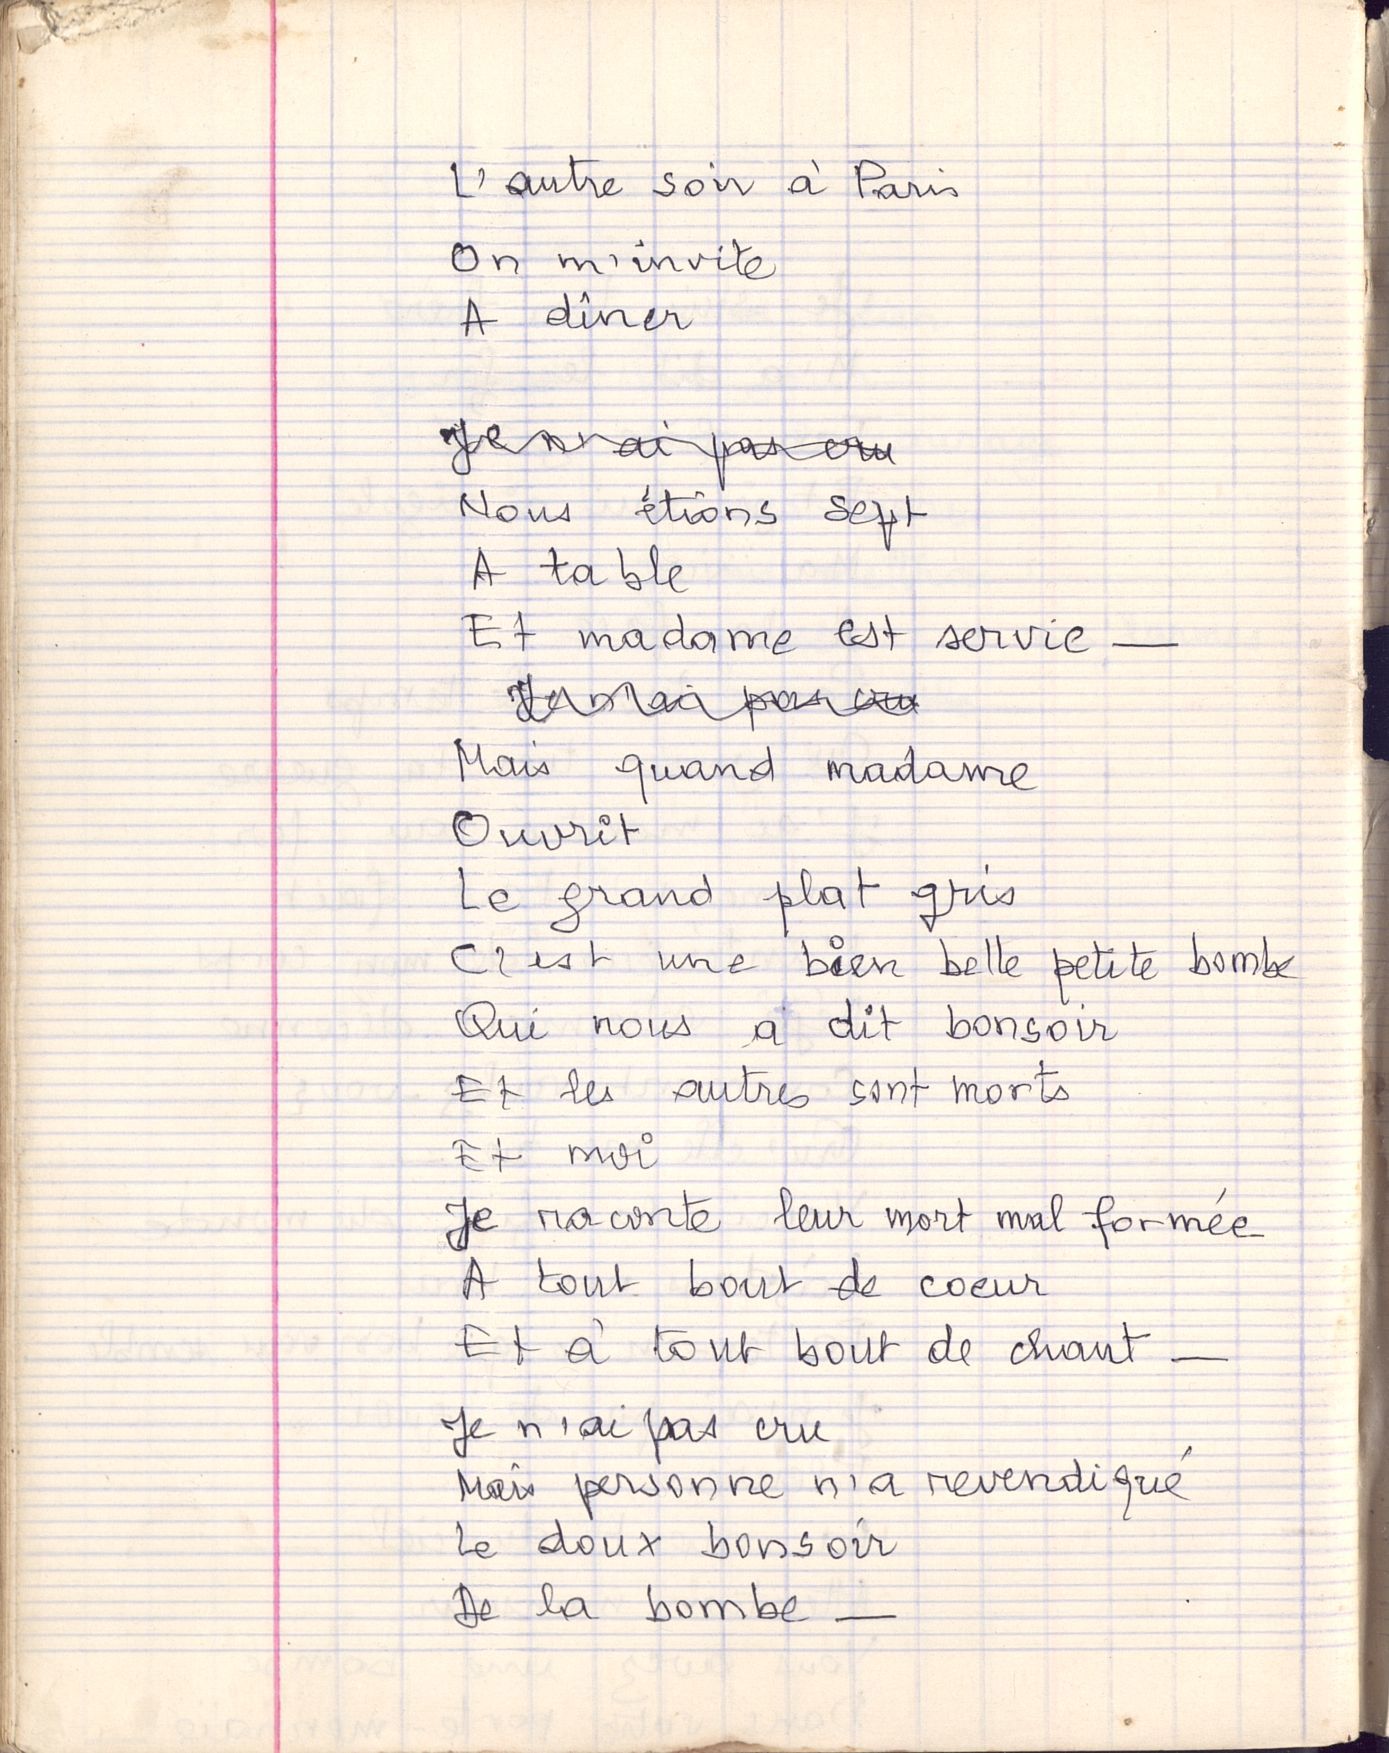 L'autre soir à Paris
On m'invite
A dîner
Je n'ai pas cru
Nous étions sept
A table
Et madame est servie —
Je n'ai pas cru
Mais quand madame
Ouvrit
Le grand plat gris
C'est une bien belle petite bombe
Qui nous a dit bonsoir
Et les autres sont morts
Et moi
Je raconte leur mort mal formée
A tout bout de coeur
Et à tout bout de chant —
Je n'ai pas cru
Mais personne n'a revendiqué
Le doux bonsoir
De la bombe —